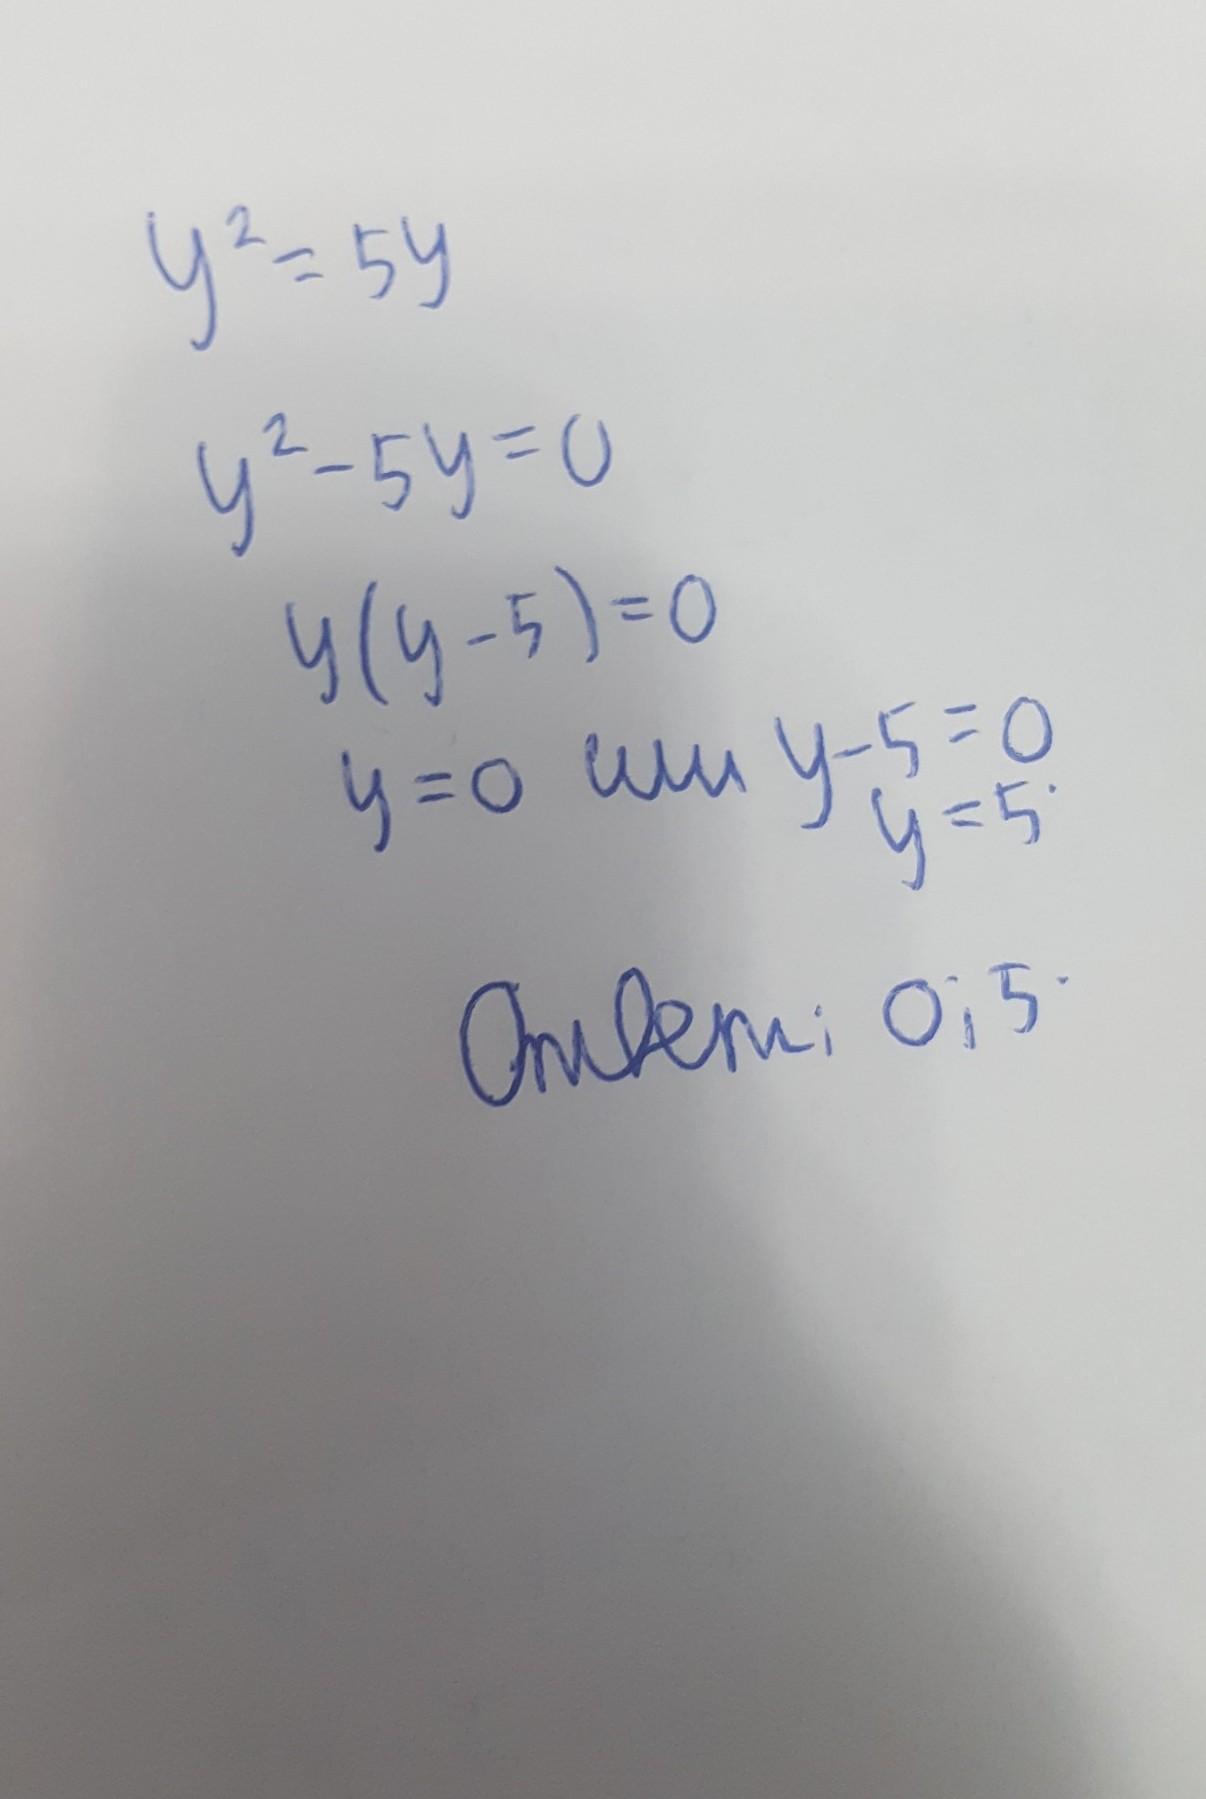 y² = 5y
y² - 5y = 0
y(y - 5) = 0
y = 0 или y - 5 = 0
y = 5.
Ответ: 0; 5.